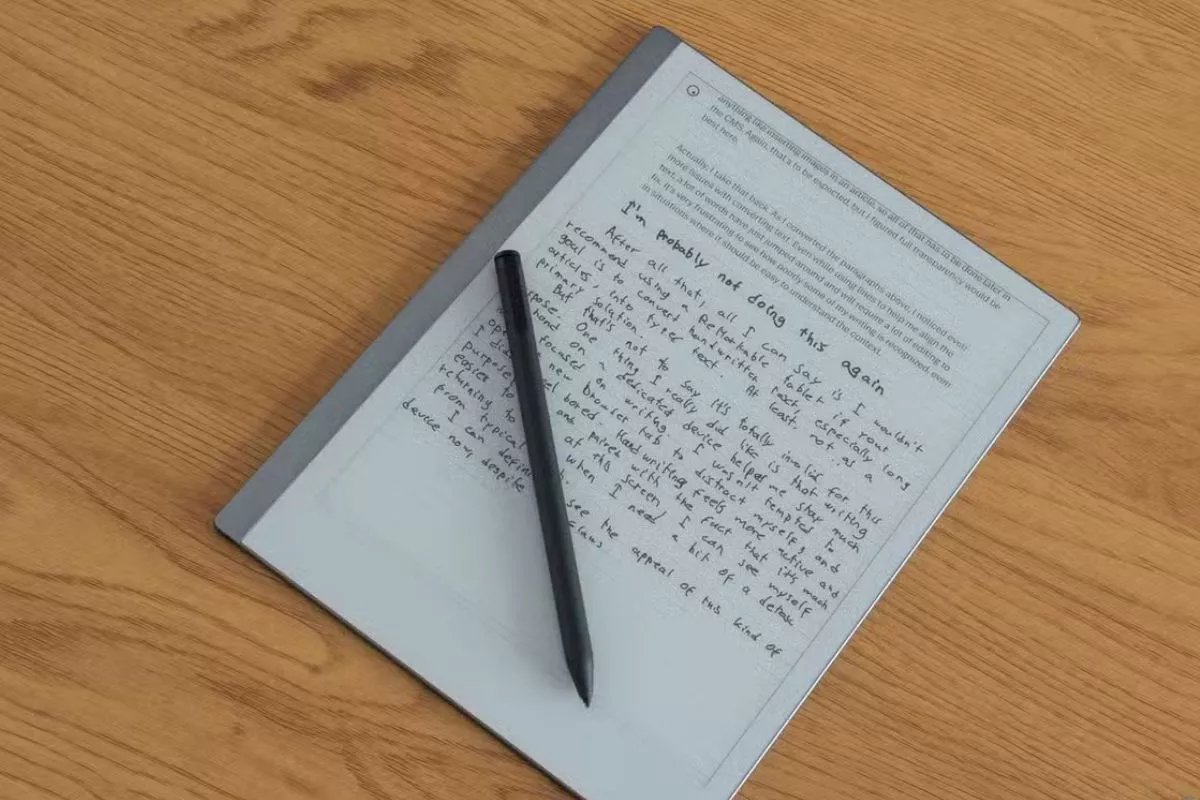 anything like inserting images in an article, so all of that has to be done later in
the CMS. Again, that's to be expected, but I figured full transparency would be
best here.
Actually, I take that back. As I converted the paragraphs above, I noticed even
more issues with converting text. Even while using lines to help me align the
text, a lot of words have just jumped around and will require a lot of editing to
fix. It's very frustrating to see how poorly some of my writing is recognized, even
in situations where it should be easy to understand the context.
I'm probably not doing this again
After all that, all I can say is I wouldn't
recommend using a ReMarkable tablet if your
goal is to convert handwritten text, especially long
articles, into typed text. At least, not as a
primary solution.
But that's not to say it's totally invalid for this
pose. One thing I really did like is that writing
hand on a dedicated device helped me stay much
focused on writing. I wasn't tempted to
new browser tab to distract myself, and
I bored. Handwriting feels more active and
and paired with the fact that it's much
easier to at this screen, I can see myself
returning to when I need a bit of a detox
from typical
I can see the appeal of this kind of
device now, despite flaws